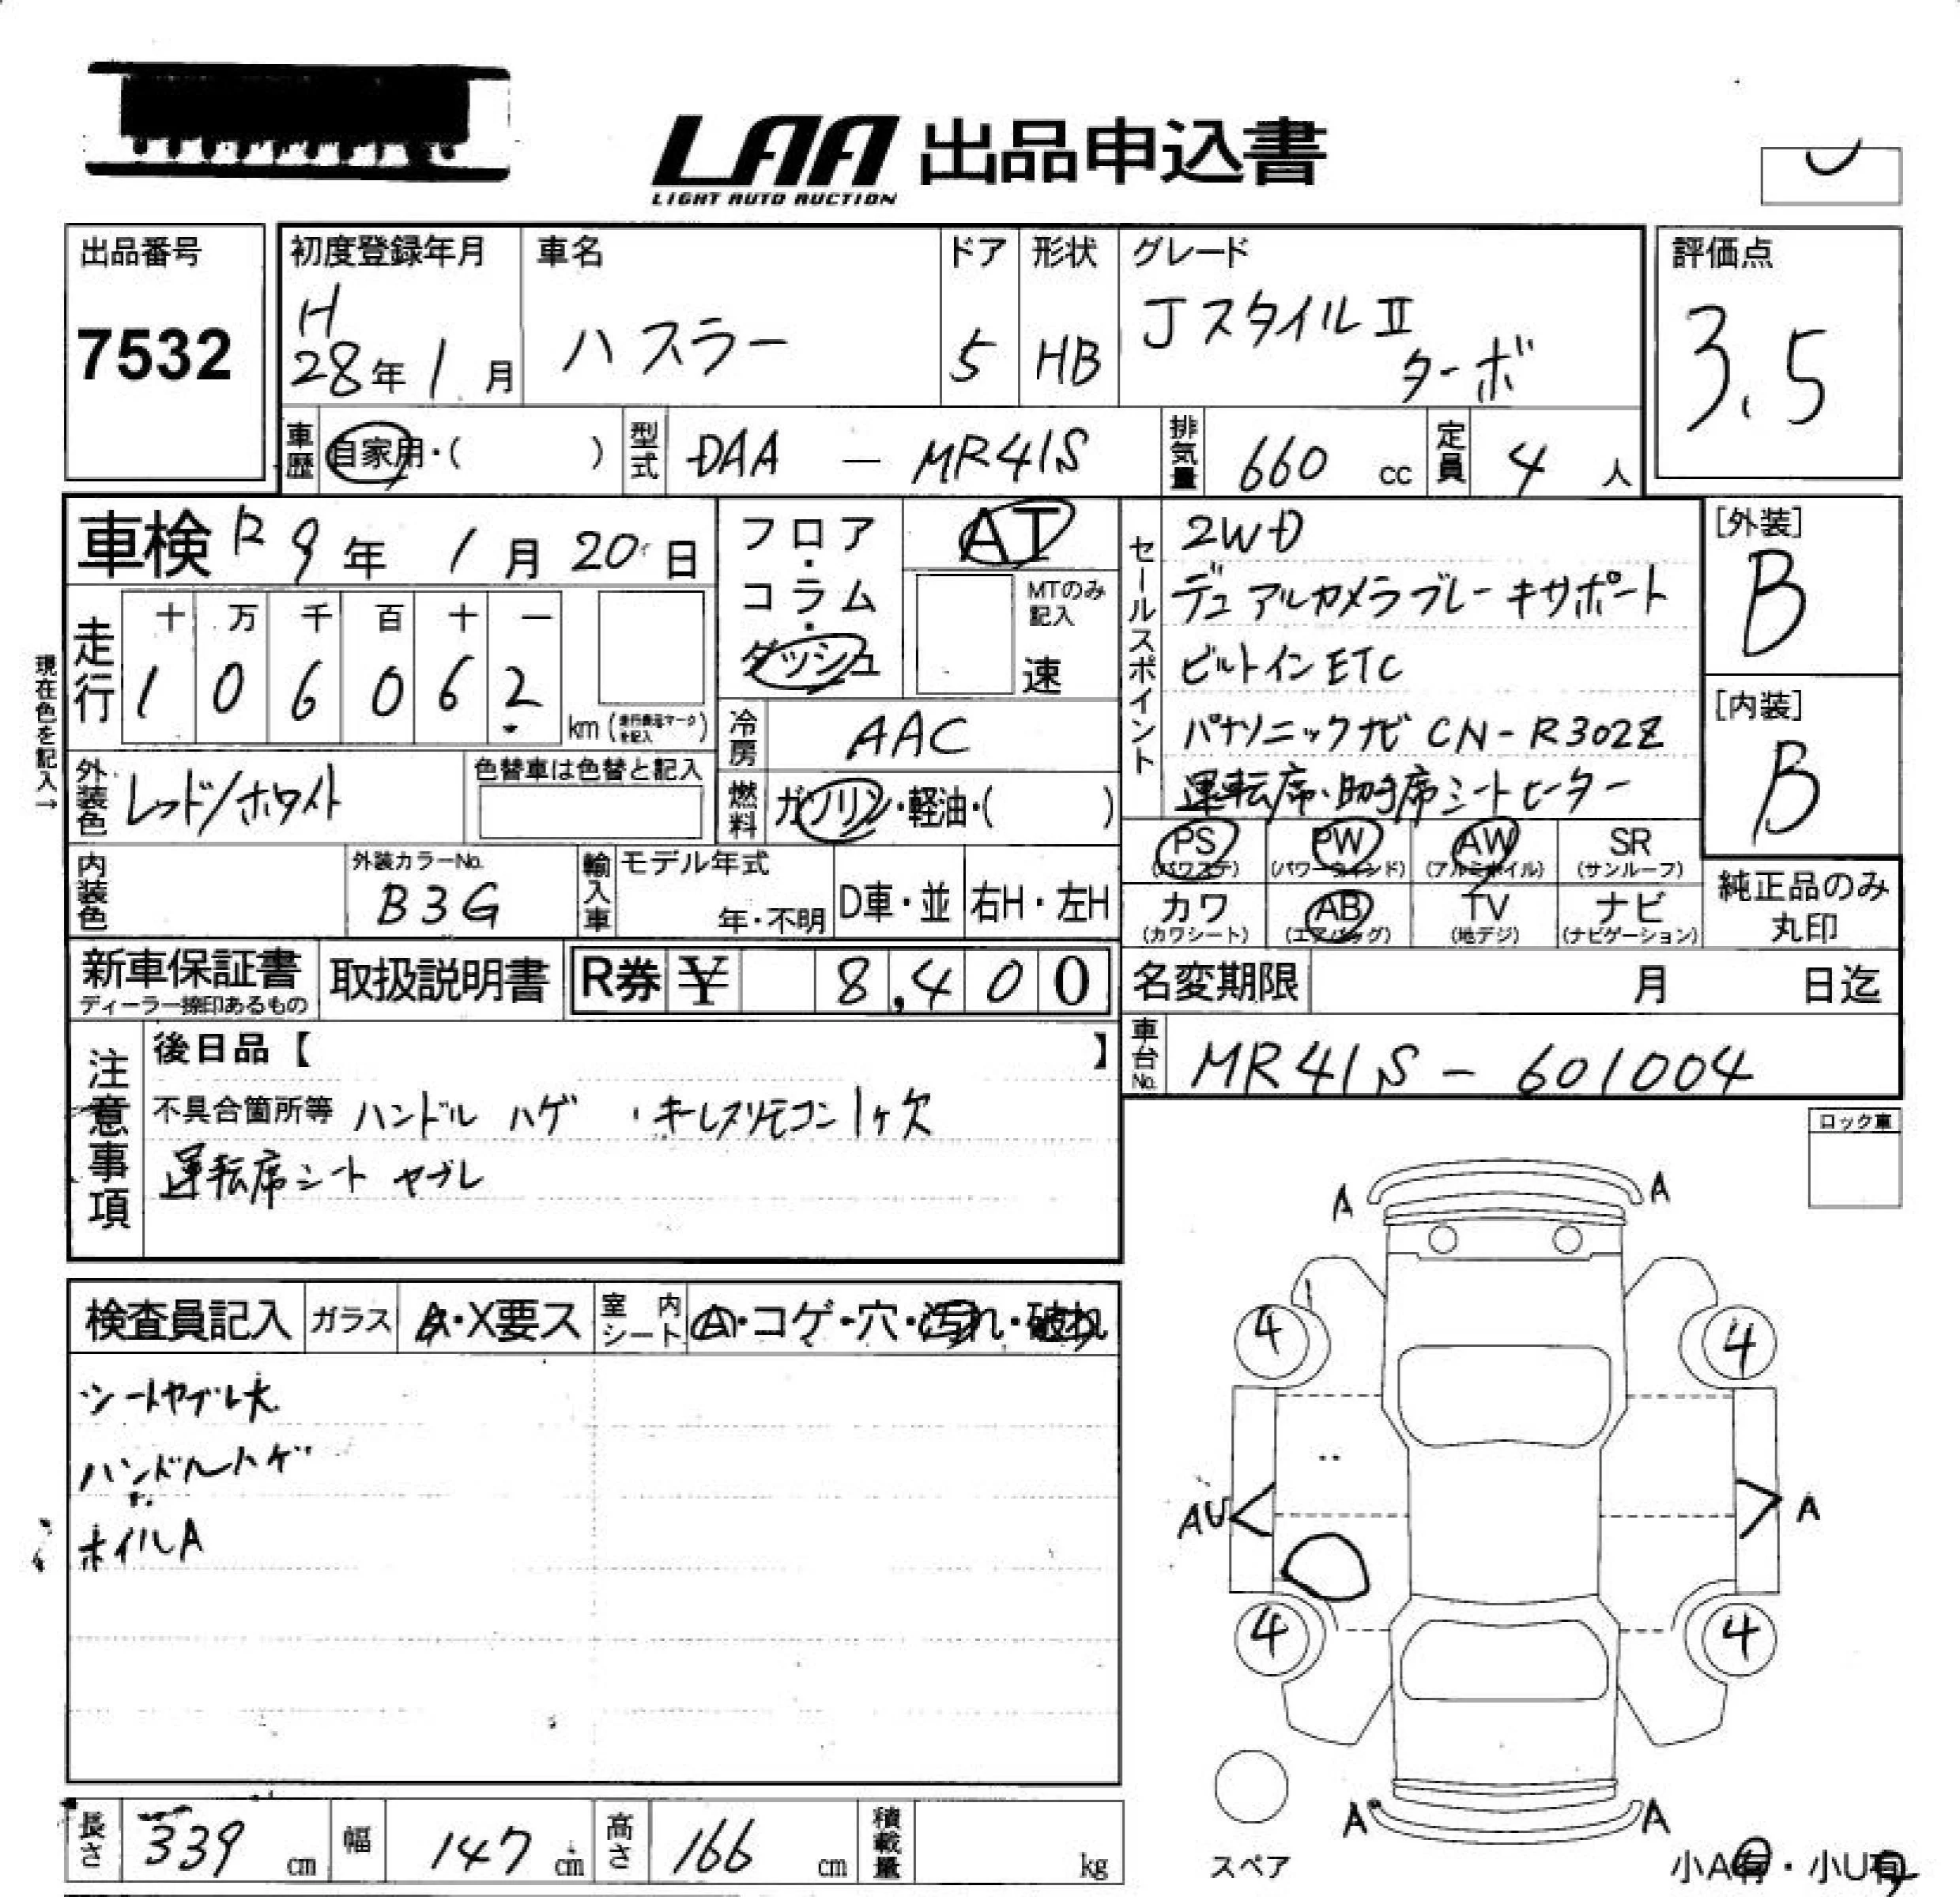 LAA 出品申込書
LIGHT AUTO AUCTION
出品番号
7532
初度登録年月
H
28年1月
車名
ハスラー
ドア
5
形状
HB
グレード
JスタイルⅡ
ターボ
評価点
3.5
車歴
自家用・( )
型式
DAA - MR41S
排気量
660 cc
定員
4 人
車検 R9年 1月 20日
走行
十 万 千 百 十 一
1 0 6 0 6 2
km (走行距離マークを記入)
現在色を記入→
フロア・コラム・ダッシュ
AT
MTのみ記入
速
冷房
AAC
燃料
ガソリン・軽油・( )
セールスポイント
2WD
デュアルカメラブレーキサポート
ビルトインETC
パナソニックナビ CN-R302Z
運転席・助手席シートヒーター
[外装]
B
[内装]
B
外装色
レッド/ホワイト
色替車は色替と記入
内装色
外装カラーNo.
B3G
輸入車
モデル年式
年・不明
D車・並
右H・左H
PS
(パワステ)
PW
(パワーウインド)
AW
(アルミホイル)
SR
(サンルーフ)
カワ
(カワシート)
AB
(エアバッグ)
TV
(地デジ)
ナビ
(ナビゲーション)
純正品のみ
丸印
新車保証書
ディーラー捺印あるもの
取扱説明書
R券 ¥ 8,400
名変期限 月 日迄
車台No.
MR41S - 601004
注意事項
後日品【 】
不具合箇所等 ハンドル ハゲ ・キーレスリモコン1ヶ欠
運転席シート ヤブレ
ロック車
検査員記入
ガラス
A・X要ス
室内シート
A・コゲ・穴・汚れ・破れ
シートヤブレ大
ハンドルハゲ
ホイルA
A
A
4
4
AU
A
4
4
A
A
スペア
小A有・小U有
長さ
339 cm
幅
147 cm
高さ
166 cm
積載量
kg